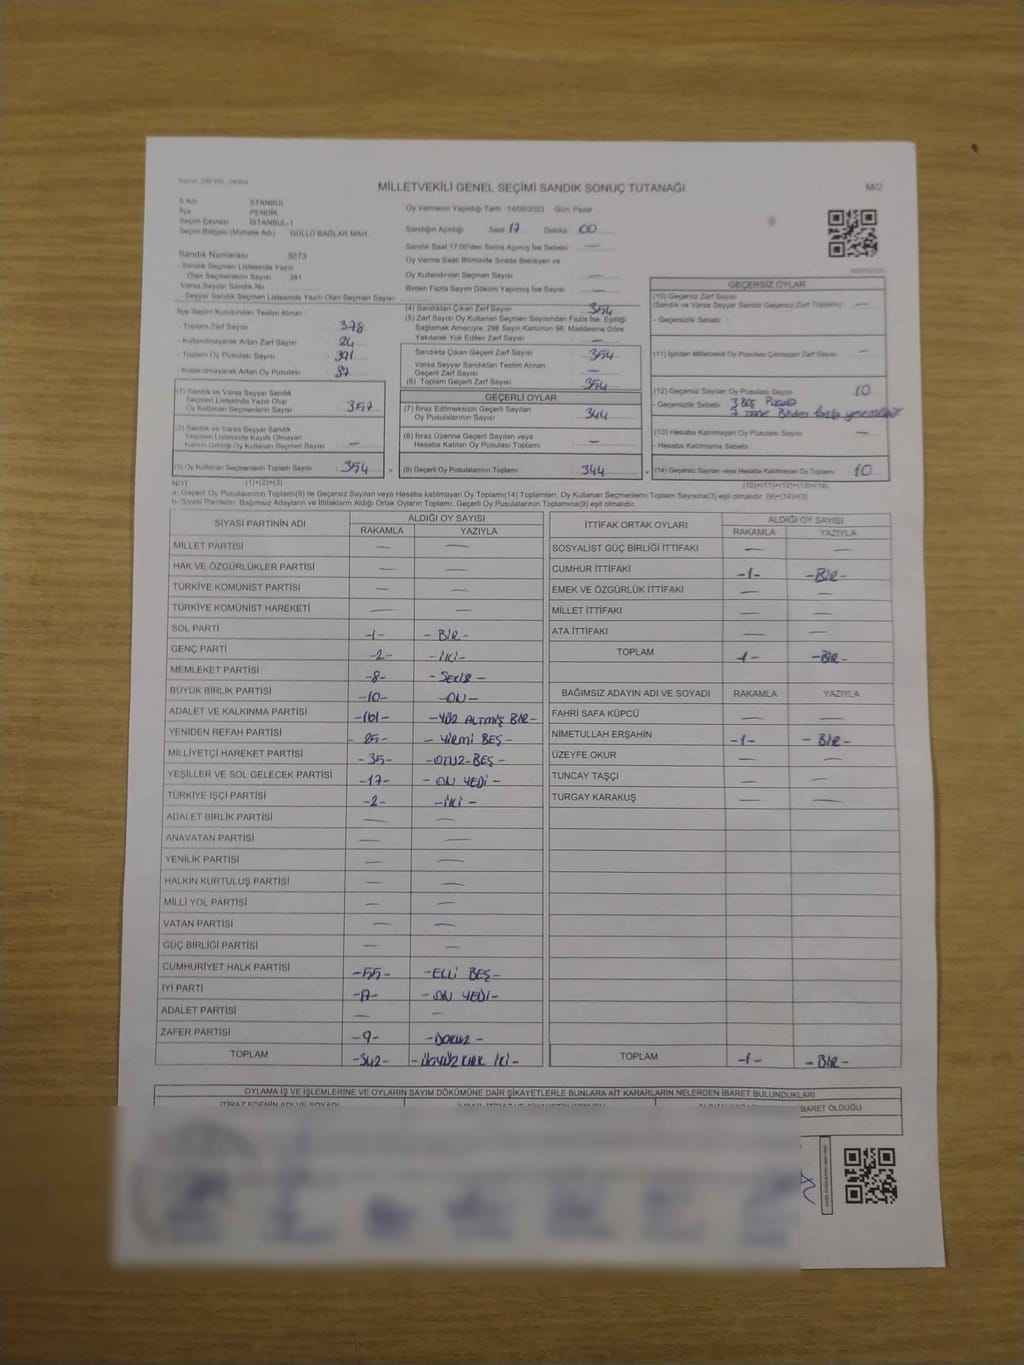 MİLLETVEKİLİ GENEL SEÇİMİ SANDIK SONUÇ TUTANAĞI
M/2
İl Adı : İSTANBUL
İlçe : PENDİK
Seçim Çevresi : İSTANBUL-1
Seçim Bölgesi (Mahalle Adı) : GÜLLÜ BAĞLAR MAH.
Sandık Numarası : 3073
- Sandık Seçmen Listesinde Yazılı
Olan Seçmenlerin Sayısı : 381
Varsa Seyyar Sandık No :
- Seyyar Sandık Seçmen Listesinde Yazılı Olan Seçmen Sayısı :
Oy Vermenin Yapıldığı Tarih : 14/05/2023 Gün: Pazar
Sandığın Açıldığı Saat 17 Dakika 00
Sandık Saat 17.00'den Sonra Açılmış İse Sebebi : —
Oy Verme Saati Bitiminde Sırada Bekleyen ve
Oy Kullandırılan Seçmen Sayısı : —
Birden Fazla Sayım Döküm Yapılmış İse Sayısı : —
İlçe Seçim Kurulundan Teslim Alınan :
- Toplam Zarf Sayısı : 378
- Kullanılmayarak Artan Zarf Sayısı : 24
- Toplam Oy Pusulası Sayısı : 391
- Kullanılmayarak Artan Oy Pusulası : 37
(1) Sandık ve Varsa Seyyar Sandık
Seçmen Listesinde Yazılı Olup
Oy Kullanan Seçmenlerin Sayısı :
(2) Sandık ve Varsa Seyyar Sandık
Seçmen Listesinde Kayıtlı Olmayan
Kanun Gereği Oy Kullanan Seçmen Sayısı : —
(3) Oy Kullanan Seçmenlerin Toplam Sayısı : 354
(4) Sandıktan Çıkan Zarf Sayısı : 354
(5) Zarf Sayısı Oy Kullanan Seçmen Sayısından Fazla İse, Eşitliği
Sağlamak Amacıyla, 298 Sayılı Kanunun 98. Maddesine Göre
Yakılarak Yok Edilen Zarf Sayısı : —
Sandıkta Çıkan Geçerli Zarf Sayısı : 354
Varsa Seyyar Sandıktan Teslim Alınan
Geçerli Zarf Sayısı : —
(6) Toplam Geçerli Zarf Sayısı : 354
GEÇERLİ OYLAR
(7) İtiraz Edilmeksizin Geçerli Sayılan
Oy Pusulalarının Sayısı : 344
(8) İtiraz Üzerine Geçerli Sayılan veya
Hesaba Katılan Oy Pusulası Toplamı : —
(9) Geçerli Oy Pusulalarının Toplamı : 344
GEÇERSİZ OYLAR
(10) Geçersiz Zarf Sayısı
(Sandık ve Varsa Seyyar Sandık Geçersiz Zarf Toplamı) : —
- Geçersizlik Sebebi :
(11) İçinden Milletvekili Oy Pusulası Çıkmayan Zarf Sayısı : —
(12) Geçersiz Sayılan Oy Pusulası Sayısı : 10
- Geçersizlik Sebebi : 3 BOŞ PUSULA
7 Tane Birden fazla
(13) Hesaba Katılmayan Oy Pusulası Sayısı : —
- Hesaba Katılmama Sebebi :
(14) Geçersiz Sayılan veya Hesaba Katılmayan Oy Pusulası Toplamı : 10
NOT : (1)+(2)=(3) (10)+(11)+(12)+(13)=(14)
a- Geçerli Oy Pusulalarının Toplamı(9) ile Geçersiz Sayılan veya Hesaba katılmayan Oy Toplamı(14) Toplamları, Oy Kullanan Seçmenlerin Toplam Sayısına(3) eşit olmalıdır. (9)+(14)=(3)
b- Siyasi Partilerin, Bağımsız Adayların ve İttifakların Aldığı Ortak Oyların Toplamı, Geçerli Oy Pusulalarının Toplamına(9) eşit olmalıdır.
SİYASİ PARTİNİN ADI ALDIĞI OY SAYISI
RAKAMLA YAZIYLA
MİLLET PARTİSİ — —
HAK VE ÖZGÜRLÜKLER PARTİSİ — —
TÜRKİYE KOMÜNİST PARTİSİ — —
TÜRKİYE KOMÜNİST HAREKETİ — —
SOL PARTİ -1- - BİR -
GENÇ PARTİ -2- -İKİ-
MEMLEKET PARTİSİ -8- -SEKİZ -
BÜYÜK BİRLİK PARTİSİ -10- -ON-
ADALET VE KALKINMA PARTİSİ -161- -YÜZ ALTMIŞ BİR-
YENİDEN REFAH PARTİSİ - 25- - YİRMİ BEŞ -
MİLLİYETÇİ HAREKET PARTİSİ - 35- -OTUZ-BEŞ -
YEŞİLLER VE SOL GELECEK PARTİSİ -17- - ON YEDİ -
TÜRKİYE İŞÇİ PARTİSİ -2- -İKİ -
ADALET BİRLİK PARTİSİ — —
ANAVATAN PARTİSİ — —
YENİLİK PARTİSİ — —
HALKIN KURTULUŞ PARTİSİ — —
MİLLİ YOL PARTİSİ — —
VATAN PARTİSİ — —
GÜÇ BİRLİĞİ PARTİSİ — —
CUMHURİYET HALK PARTİSİ -55- -ELLİ BEŞ-
İYİ PARTİ -17- - ON YEDİ-
ADALET PARTİSİ — —
ZAFER PARTİSİ -9- -DOKUZ -
TOPLAM -342- -ÜÇYÜZ KIRK İKİ -
İTTİFAK ORTAK OYLARI ALDIĞI OY SAYISI
RAKAMLA YAZIYLA
SOSYALİST GÜÇ BİRLİĞİ İTTİFAKI — —
CUMHUR İTTİFAKI -1- -BİR-
EMEK VE ÖZGÜRLÜK İTTİFAKI — —
MİLLET İTTİFAKI — —
ATA İTTİFAKI — —
TOPLAM -1- -BİR-
BAĞIMSIZ ADAYIN ADI VE SOYADI RAKAMLA YAZIYLA
FAHRİ SAFA KÜPCÜ — —
NİMETULLAH ERŞAHİN -1- - BİR-
ÜZEYFE OKUR — —
TUNCAY TAŞÇI — —
TURGAY KARAKUŞ — —
TOPLAM -1- - BİR -
OYLAMA İŞ VE İŞLEMLERİNE VE OYLARIN SAYIM DÖKÜMÜNE DAİR ŞİKAYETLERLE BUNLARA AİT KARARLARIN NELERDEN İBARET BULUNDUKLARI
İTİRAZ EDENİN ADI VE SOYADI
İBARET OLDUĞU